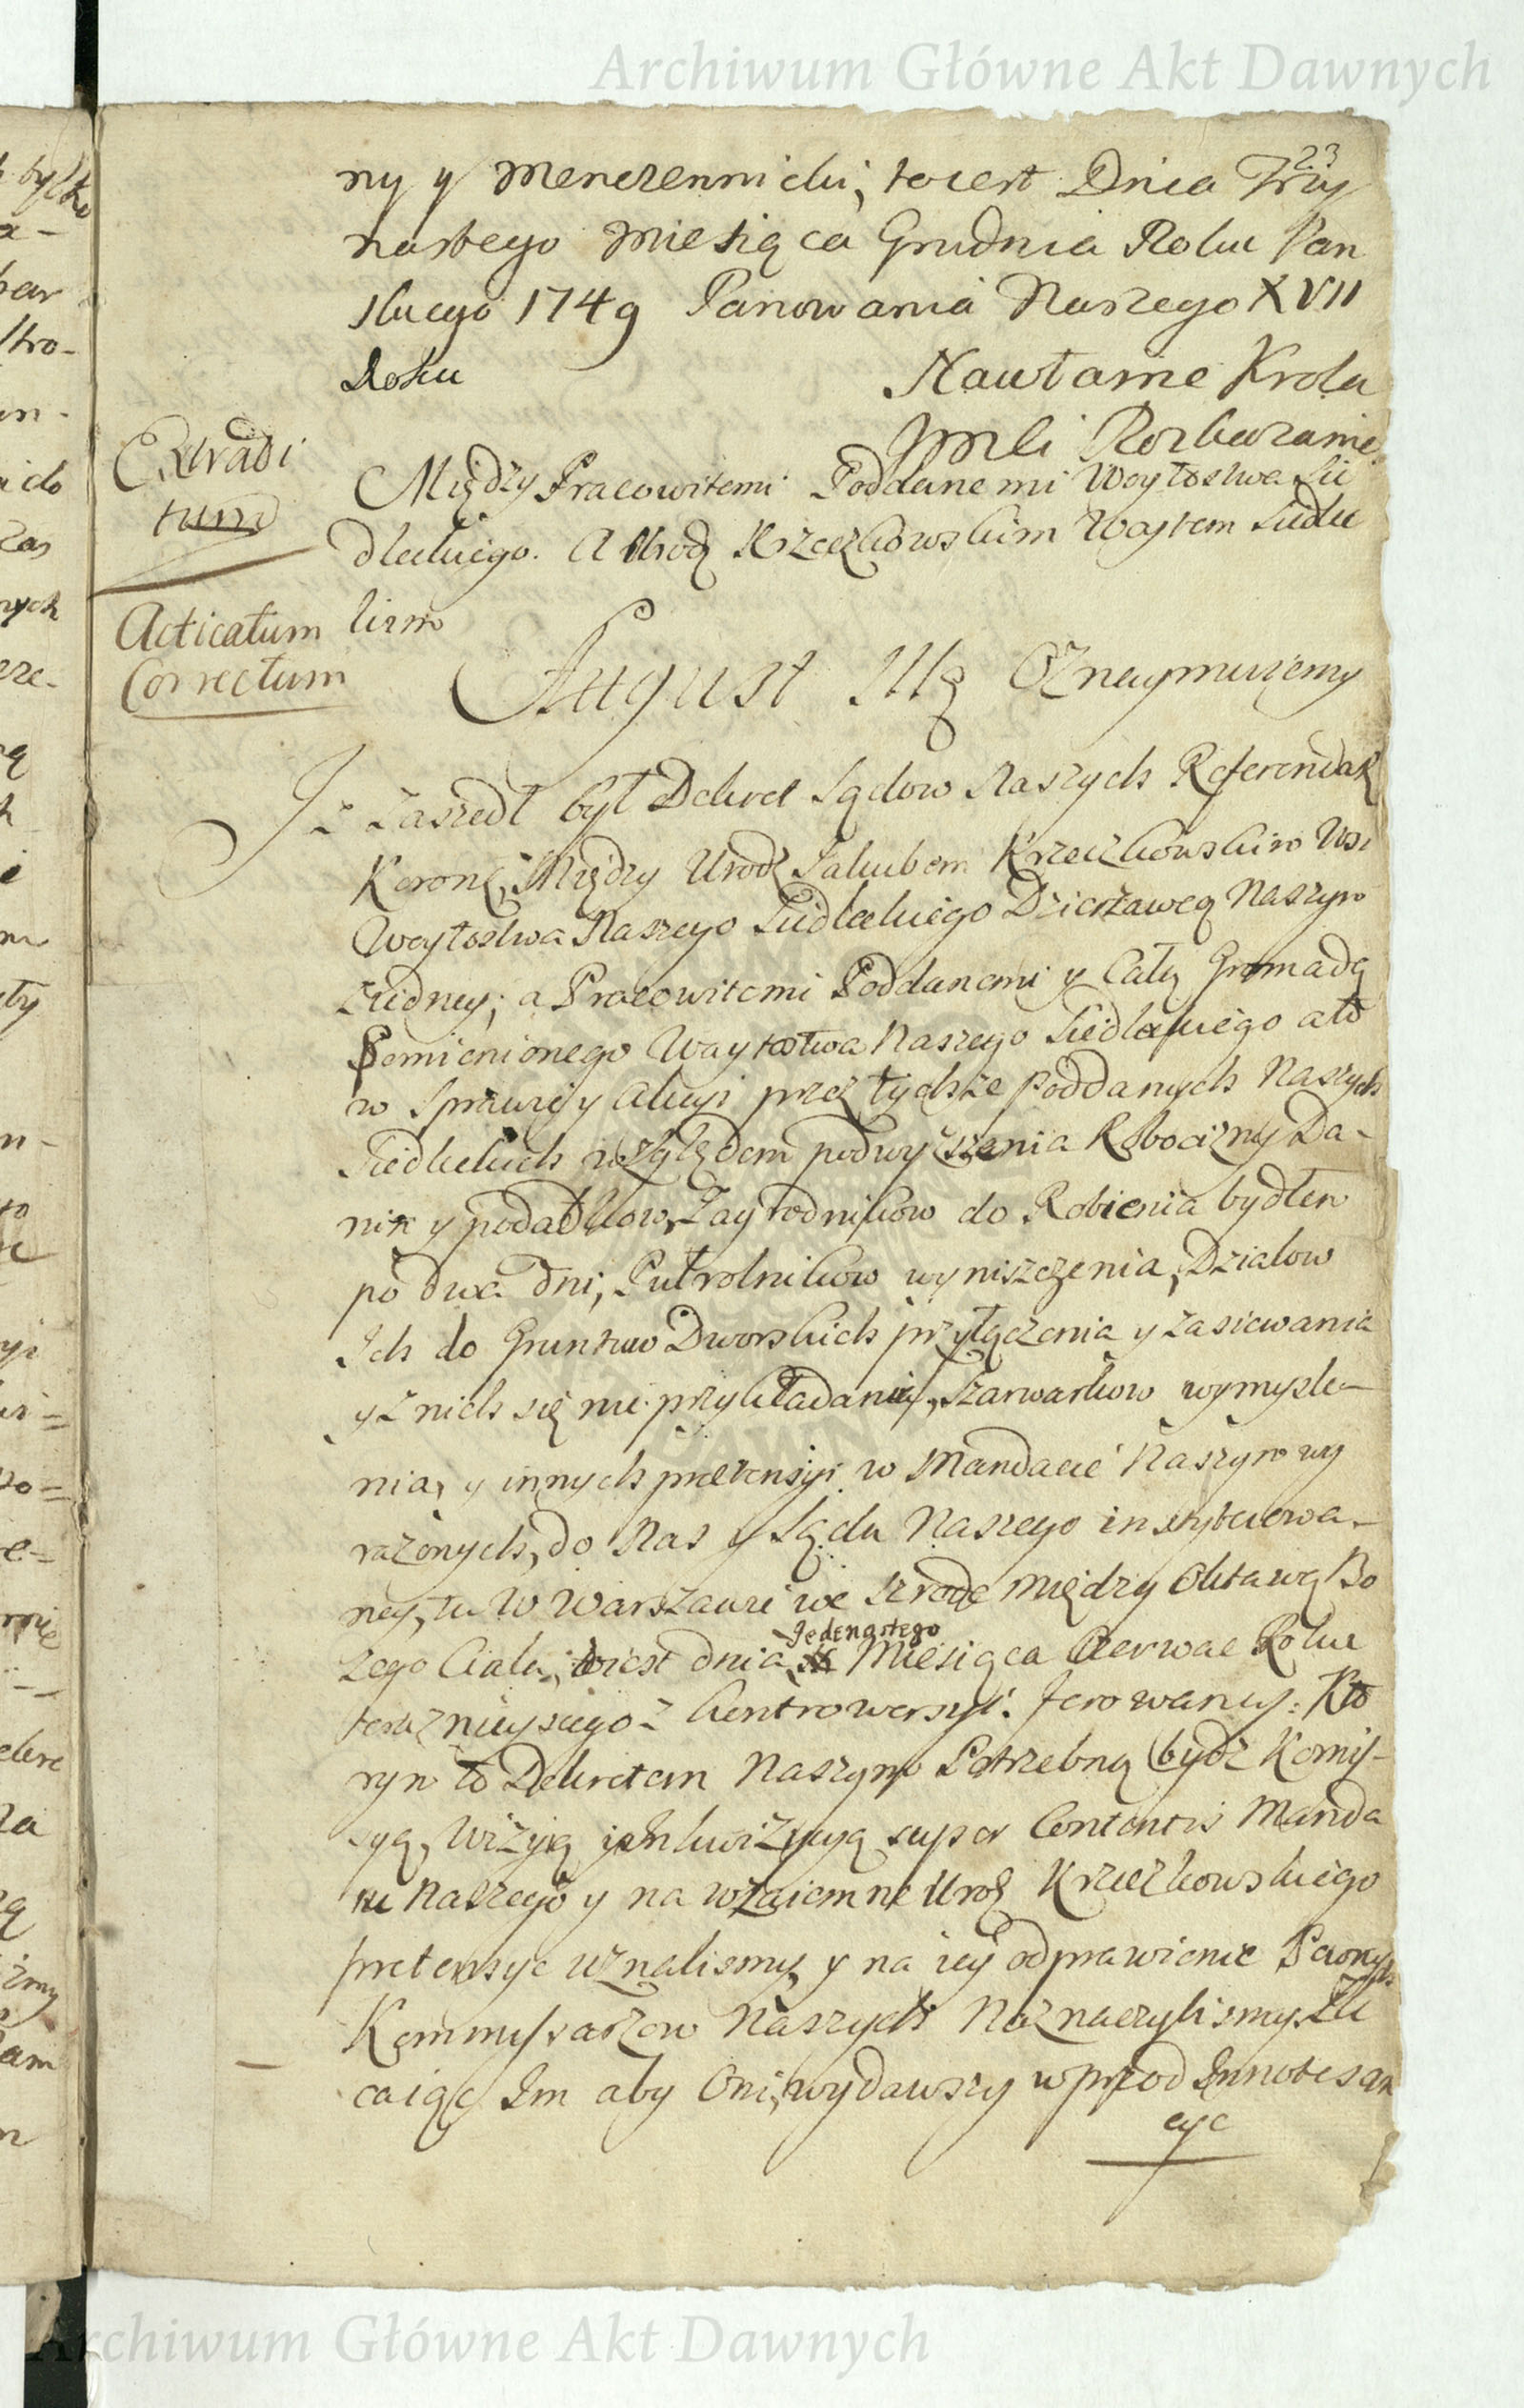 Archiwum Główne Akt Dawnych
23
ny y Menczennicki, toiest Dnia Trzy
nastego Miesiąca Grudnia Roku Pan
skiego 1749 Panowania Naszego XVII
Roku
Na własne Krola
Jmći Rozkazanie
Extradi
tum
Między Pracowitemi Poddanemi Woytostwa Sie
dleckiego. A Urodz Krzeczkowskim Woytem Siedle
ckim
Acticatum
Correctum
August IIIci Oznaymuiemy
Iż zaszedł był Dekret Sądow Naszych Referendar
Koronń, Między Urodz Jakubem Krzeczkowskim Wsi
Woytostwa Naszego Siedleckiego Dzierżawcą Naszym
z iedney; a Pracowitemi Poddanemi y Całą Gromadą
Pomienionego Woytostwa Naszego Siedleckiego a to
w Sprawie y Akcyi przez tychże Poddanych Naszych
Siedleckich względem podwyższenia Robocizny Da-
nin y podatkow, Zagrodnikow do Robienia bydłem
po dwa dni, Pułrolnikow wyniszczenia, Działow
Ich do Gruntow Dworskich przyłączenia y zasiewania
y z nich się nie przykładania, szarwarkow wymyśle-
nia, y innych pretensyi w Mandacie Naszym wy
rażonych, do Nas y Sądu Naszego instytuowa-
ney, tu w Warszawie we Szrodę między Oktawą Bo
żego Ciała, toiest dnia Jedenastego Miesiąca Czerwca Roku
teraznieyszego z kontrowersyi ferowany: Kto
rym to Dekretem Naszym Potrzebną bydź Kommis-
syą, Wizyą y Inkwizycyą super Contentis Manda
tu Naszego y na wzaiemne Urodz Krzeczkowskiego
pretensye uznalismy, y na iey odprawienie Pewnych
Kommissarzow Naszych Naznaczylismy. Zle
caiąc Im aby Oni, wydawszy wprzod Innotescen
cye
Archiwum Główne Akt Dawnych